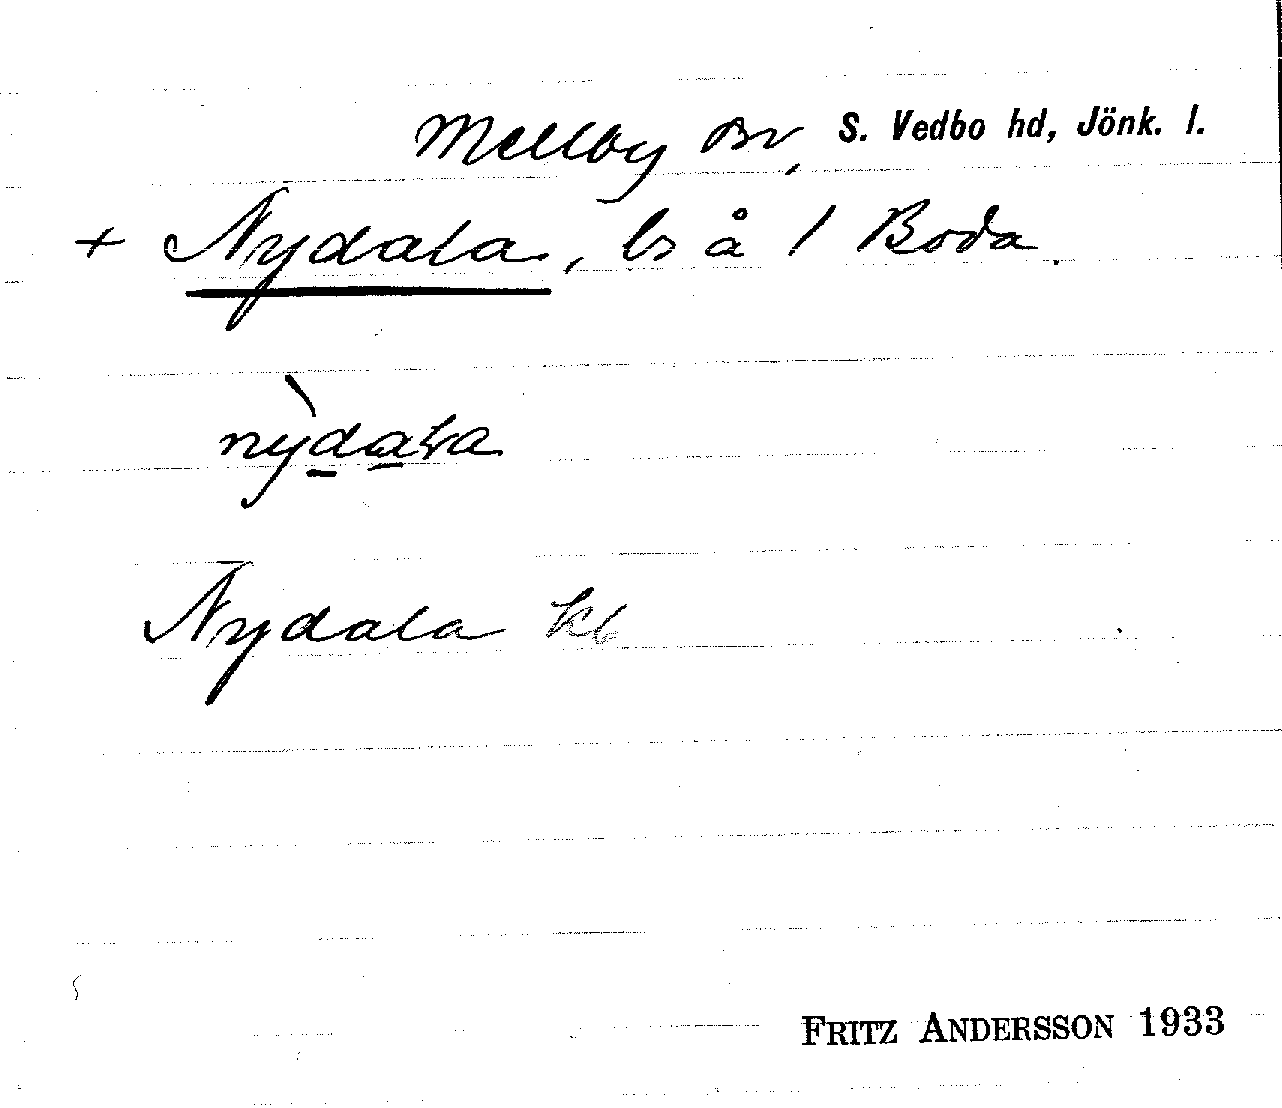 Mellby sn, S. Vedbo hd, Jönk. l.
+ Nydala, ls å 1 Boda.
nỳdala
Nydala kb
FRITZ ANDERSSON 1933